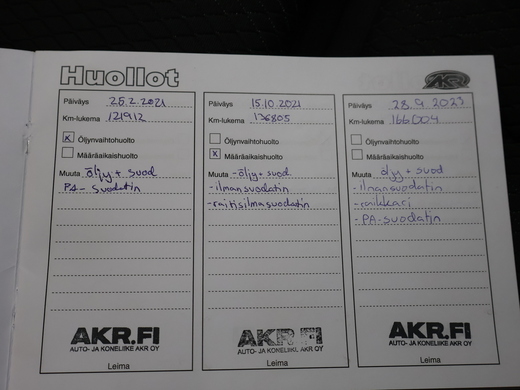 Huollot
AKR
Päiväys 25.2.2021
Km-lukema 121912
X Öljynvaihtohuolto
Määräaikaishuolto
Muuta öljy + suod
PA- suodatin
AKR.FI
AUTO- JA KONELIIKE AKR OY
Leima
Päiväys 15.10.2021
Km-lukema 136805
Öljynvaihtohuolto
X Määräaikaishuolto
Muuta -öljy + suod.
-ilmansuodatin
-raitisilmasuodatin
AKR.FI
AUTO- JA KONELIIKE AKR OY
Leima
Päiväys 28.9.2023
Km-lukema 166004
Öljynvaihtohuolto
Määräaikaishuolto
Muuta öljy + suod
-ilmansuodatin
-raikkari
-PA-suodatin
AKR.FI
AUTO- JA KONELIIKE AKR OY
Leima